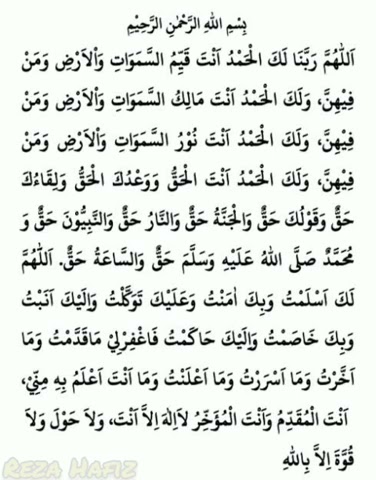 بِسْمِ اللهِ الرَّحْمٰنِ الرَّحِيْمِ
اَللّٰهُمَّ رَبَّنَا لَكَ الْحَمْدُ اَنْتَ قَيِّمُ السَّمَوَاتِ وَاْلاَرْضِ وَمَنْ
فِيْهِنَّ، وَلَكَ الْحَمْدُ اَنْتَ مَالِكُ السَّمَوَاتِ وَاْلاَرْضِ وَمَنْ
فِيْهِنَّ، وَلَكَ الْحَمْدُ اَنْتَ نُوْرُ السَّمَوَاتِ وَاْلاَرْضِ وَمَنْ
فِيْهِنَّ، وَلَكَ الْحَمْدُ اَنْتَ الْحَقُّ وَوَعْدُكَ الْحَقُّ وَلِقَاءُكَ
حَقٌّ وَقَوْلُكَ حَقٌّ وَالْجَنَّةُ حَقٌّ وَالنَّارُ حَقٌّ وَالنَّبِيُّوْنَ حَقٌّ وَ
مُحَمَّدٌ صَلَّى اللهُ عَلَيْهِ وَسَلَّمَ حَقٌّ وَالسَّاعَةُ حَقٌّ. اَللّٰهُمَّ
لَكَ اَسْلَمْتُ وَبِكَ اٰمَنْتُ وَعَلَيْكَ تَوَكَّلْتُ وَاِلَيْكَ اَنَبْتُ
وَبِكَ خَاصَمْتُ وَاِلَيْكَ حَاكَمْتُ فَاغْفِرْلِيْ مَاقَدَّمْتُ وَمَا
اَخَّرْتُ وَمَا اَسْرَرْتُ وَمَا اَعْلَنْتُ وَمَا اَنْتَ اَعْلَمُ بِهِ مِنِّيْ،
اَنْتَ الْمُقَدِّمُ وَاَنْتَ الْمُؤَخِّرُ لاَاِلٰهَ اِلاَّ اَنْتَ، وَلاَ حَوْلَ وَلاَ
قُوَّةَ اِلاَّ بِاللهِ
REZA HAFIZ